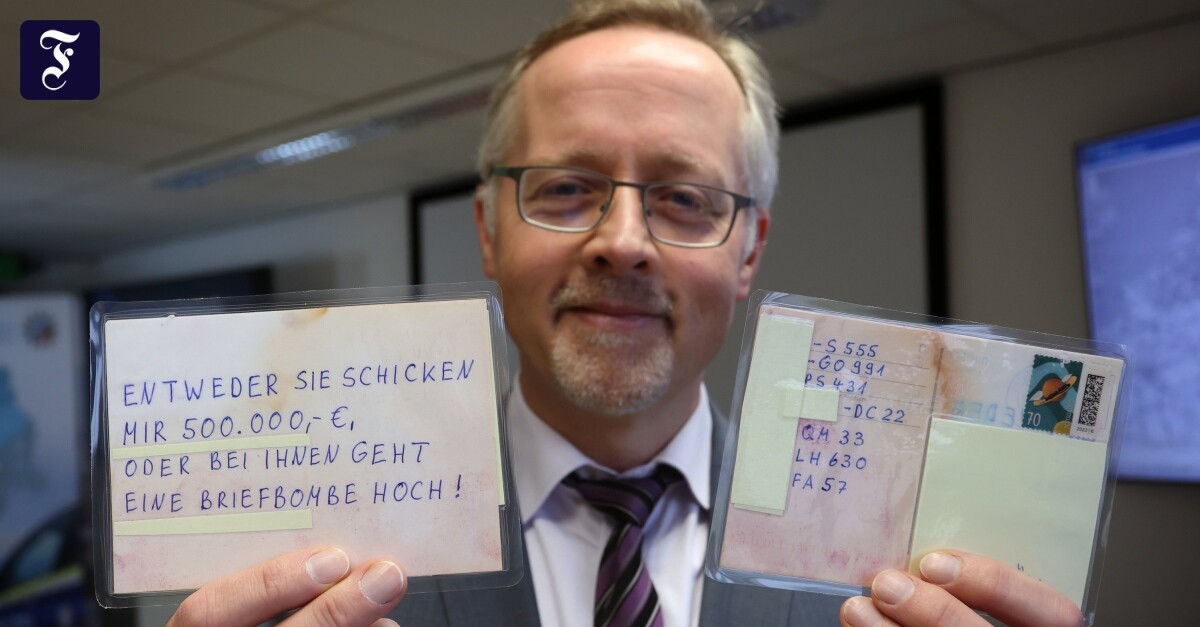 F
ENTWEDER SIE SCHICKEN
MIR 500.000,- €,
ODER BEI IHNEN GEHT
EINE BRIEFBOMBE HOCH!
-S 555
-GO 991
PS 431
-DC 22
QM 33
LH 630
FA 57
70